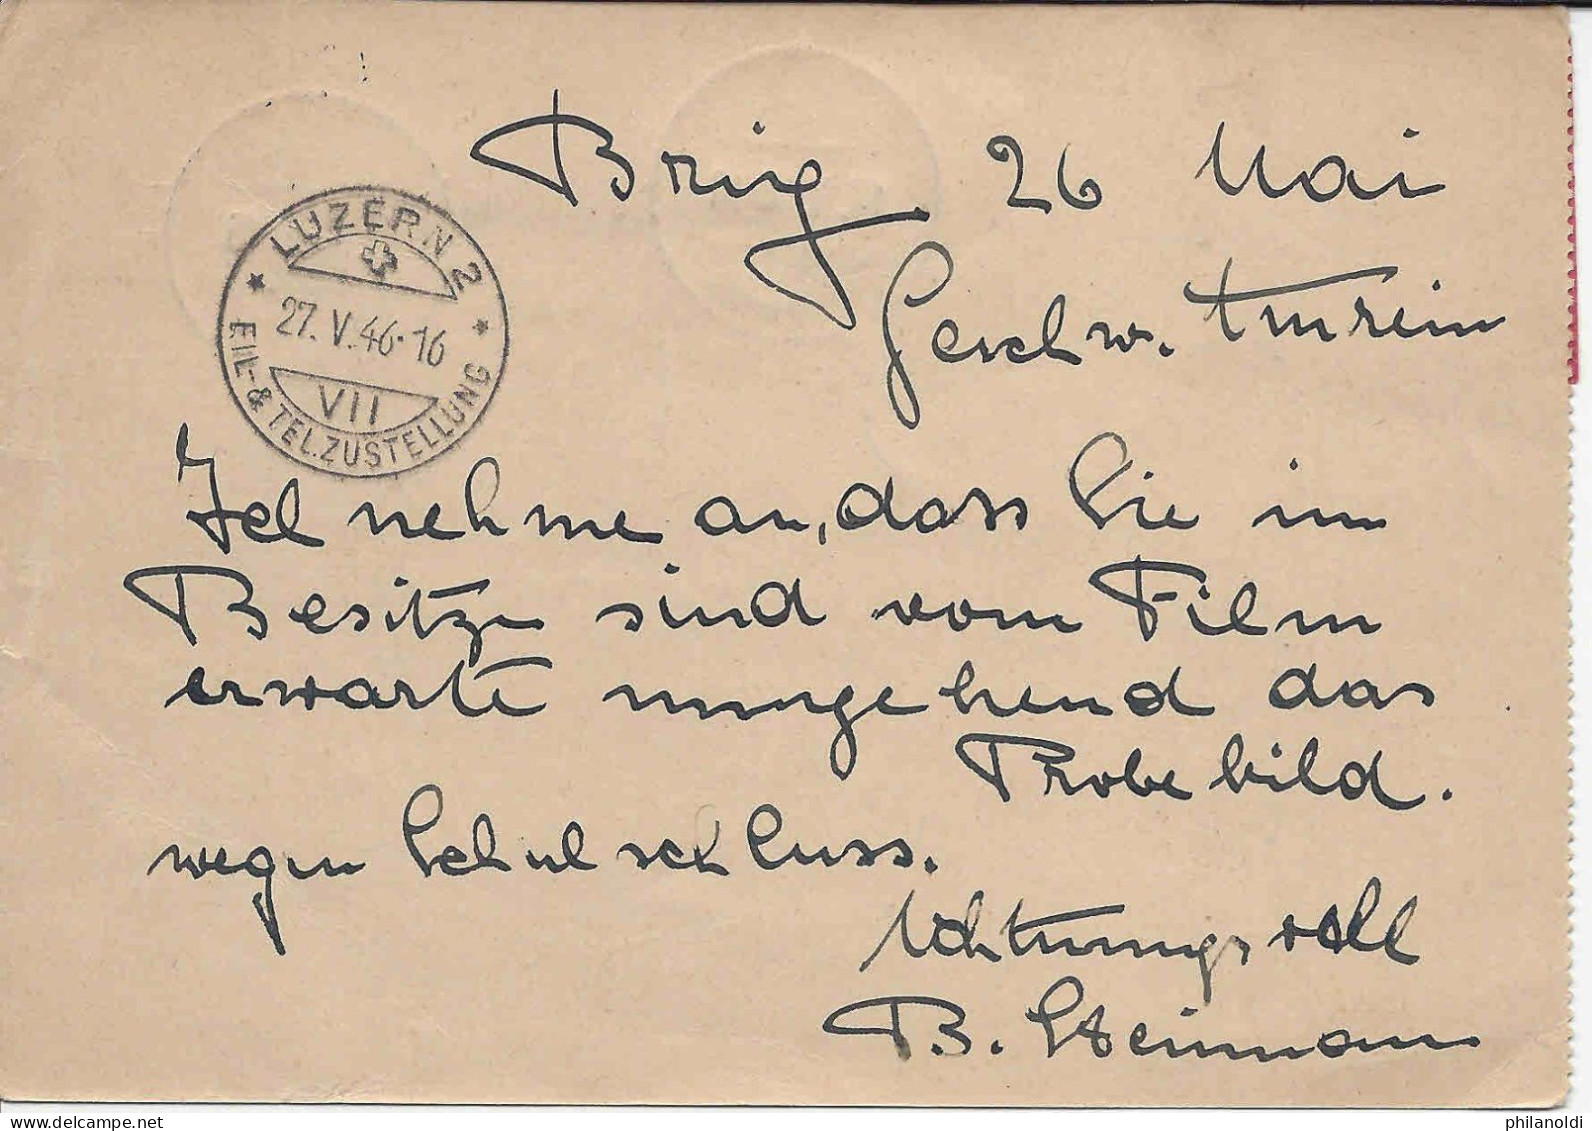 Brig, 26 Mai
Geschw. Amrein
LUZERN 2
27.V.46-16
VII
EIL- & TEL.ZUSTELLUNG
Ich nehme an, dass Sie im
Besitze sind vom Film
erwarte umgehend das
Probebild.
wegen Schulschluss.
Achtungsvoll
B. Steinmann
philanoldi